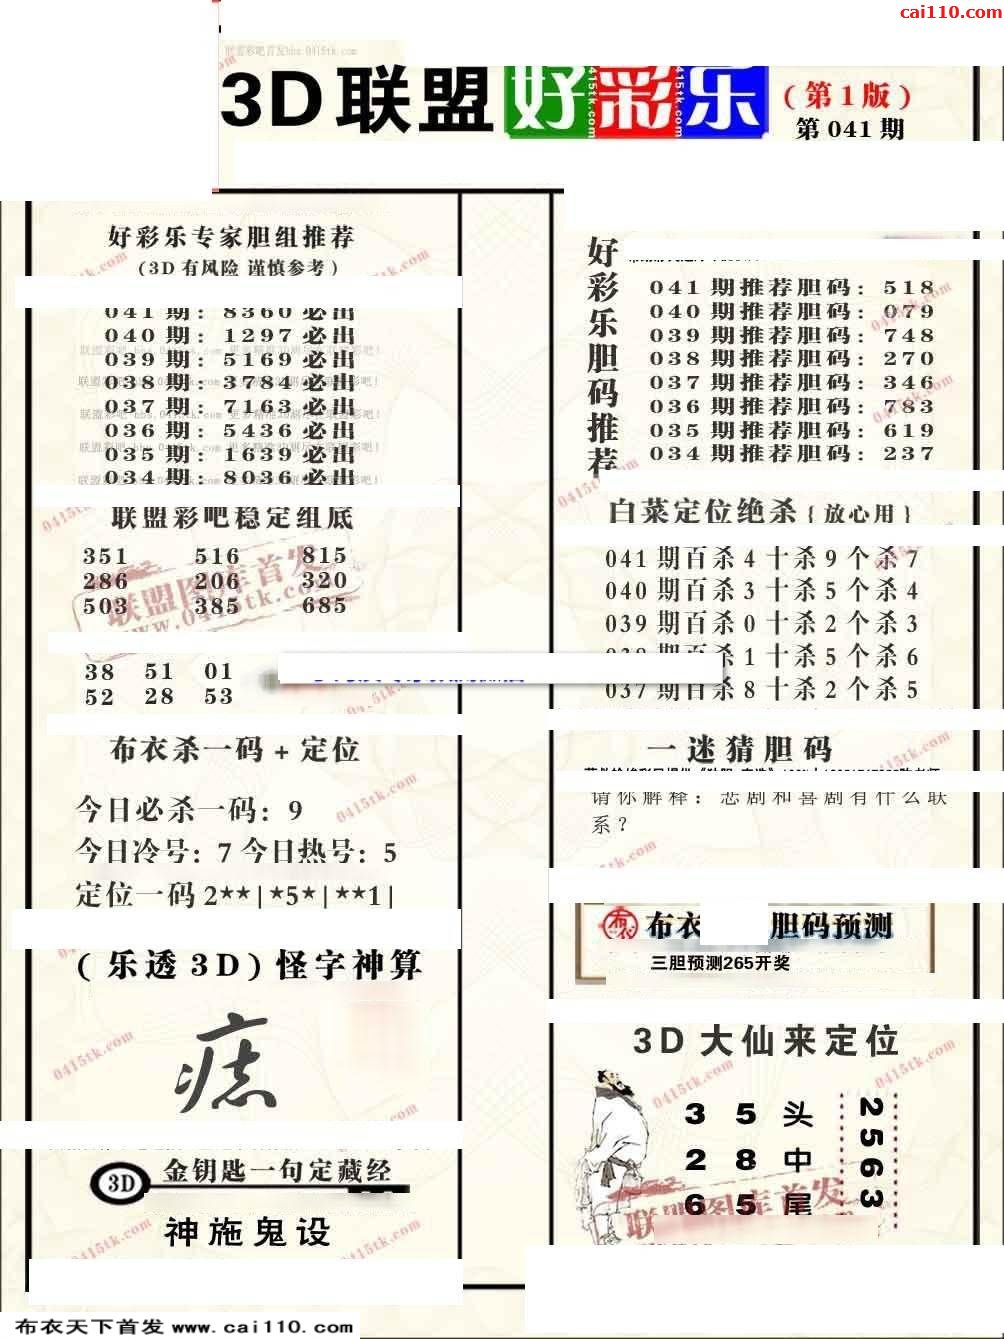 cai110.com
3D联盟好彩乐(第1版)
第041期
好彩乐专家胆组推荐
(3D有风险 谨慎参考)
041期: 8360必出
040期: 1297必出
039期: 5169必出
038期: 3784必出
037期: 7163必出
036期: 5436必出
035期: 1639必出
034期: 8036必出
联盟彩吧稳定组底
351 516 815
286 206 320
503 385 685
38 51 01
52 28 53
布衣杀一码+定位
今日必杀一码: 9
今日冷号: 7 今日热号: 5
定位一码 2**|*5*|**1|
(乐透3D)怪字神算
痣
3D 金钥匙一句定藏经
神施鬼设
好彩乐胆码推荐
041期推荐胆码: 518
040期推荐胆码: 079
039期推荐胆码: 748
038期推荐胆码: 270
037期推荐胆码: 346
036期推荐胆码: 783
035期推荐胆码: 619
034期推荐胆码: 237
白菜定位绝杀{放心用}
041期百杀4十杀9个杀7
040期百杀3十杀5个杀4
039期百杀0十杀2个杀3
杀1十杀5个杀6
037期百杀8十杀2个杀5
一迷猜胆码
请你解释: 悲剧和喜剧有什么联
系?
布衣 胆码预测
三胆预测265开奖
3D大仙来定位
3 5头
2 8中
6 5尾
2563
联盟图库首发
www.0415tk.com
布衣天下首发 www.cai110.com